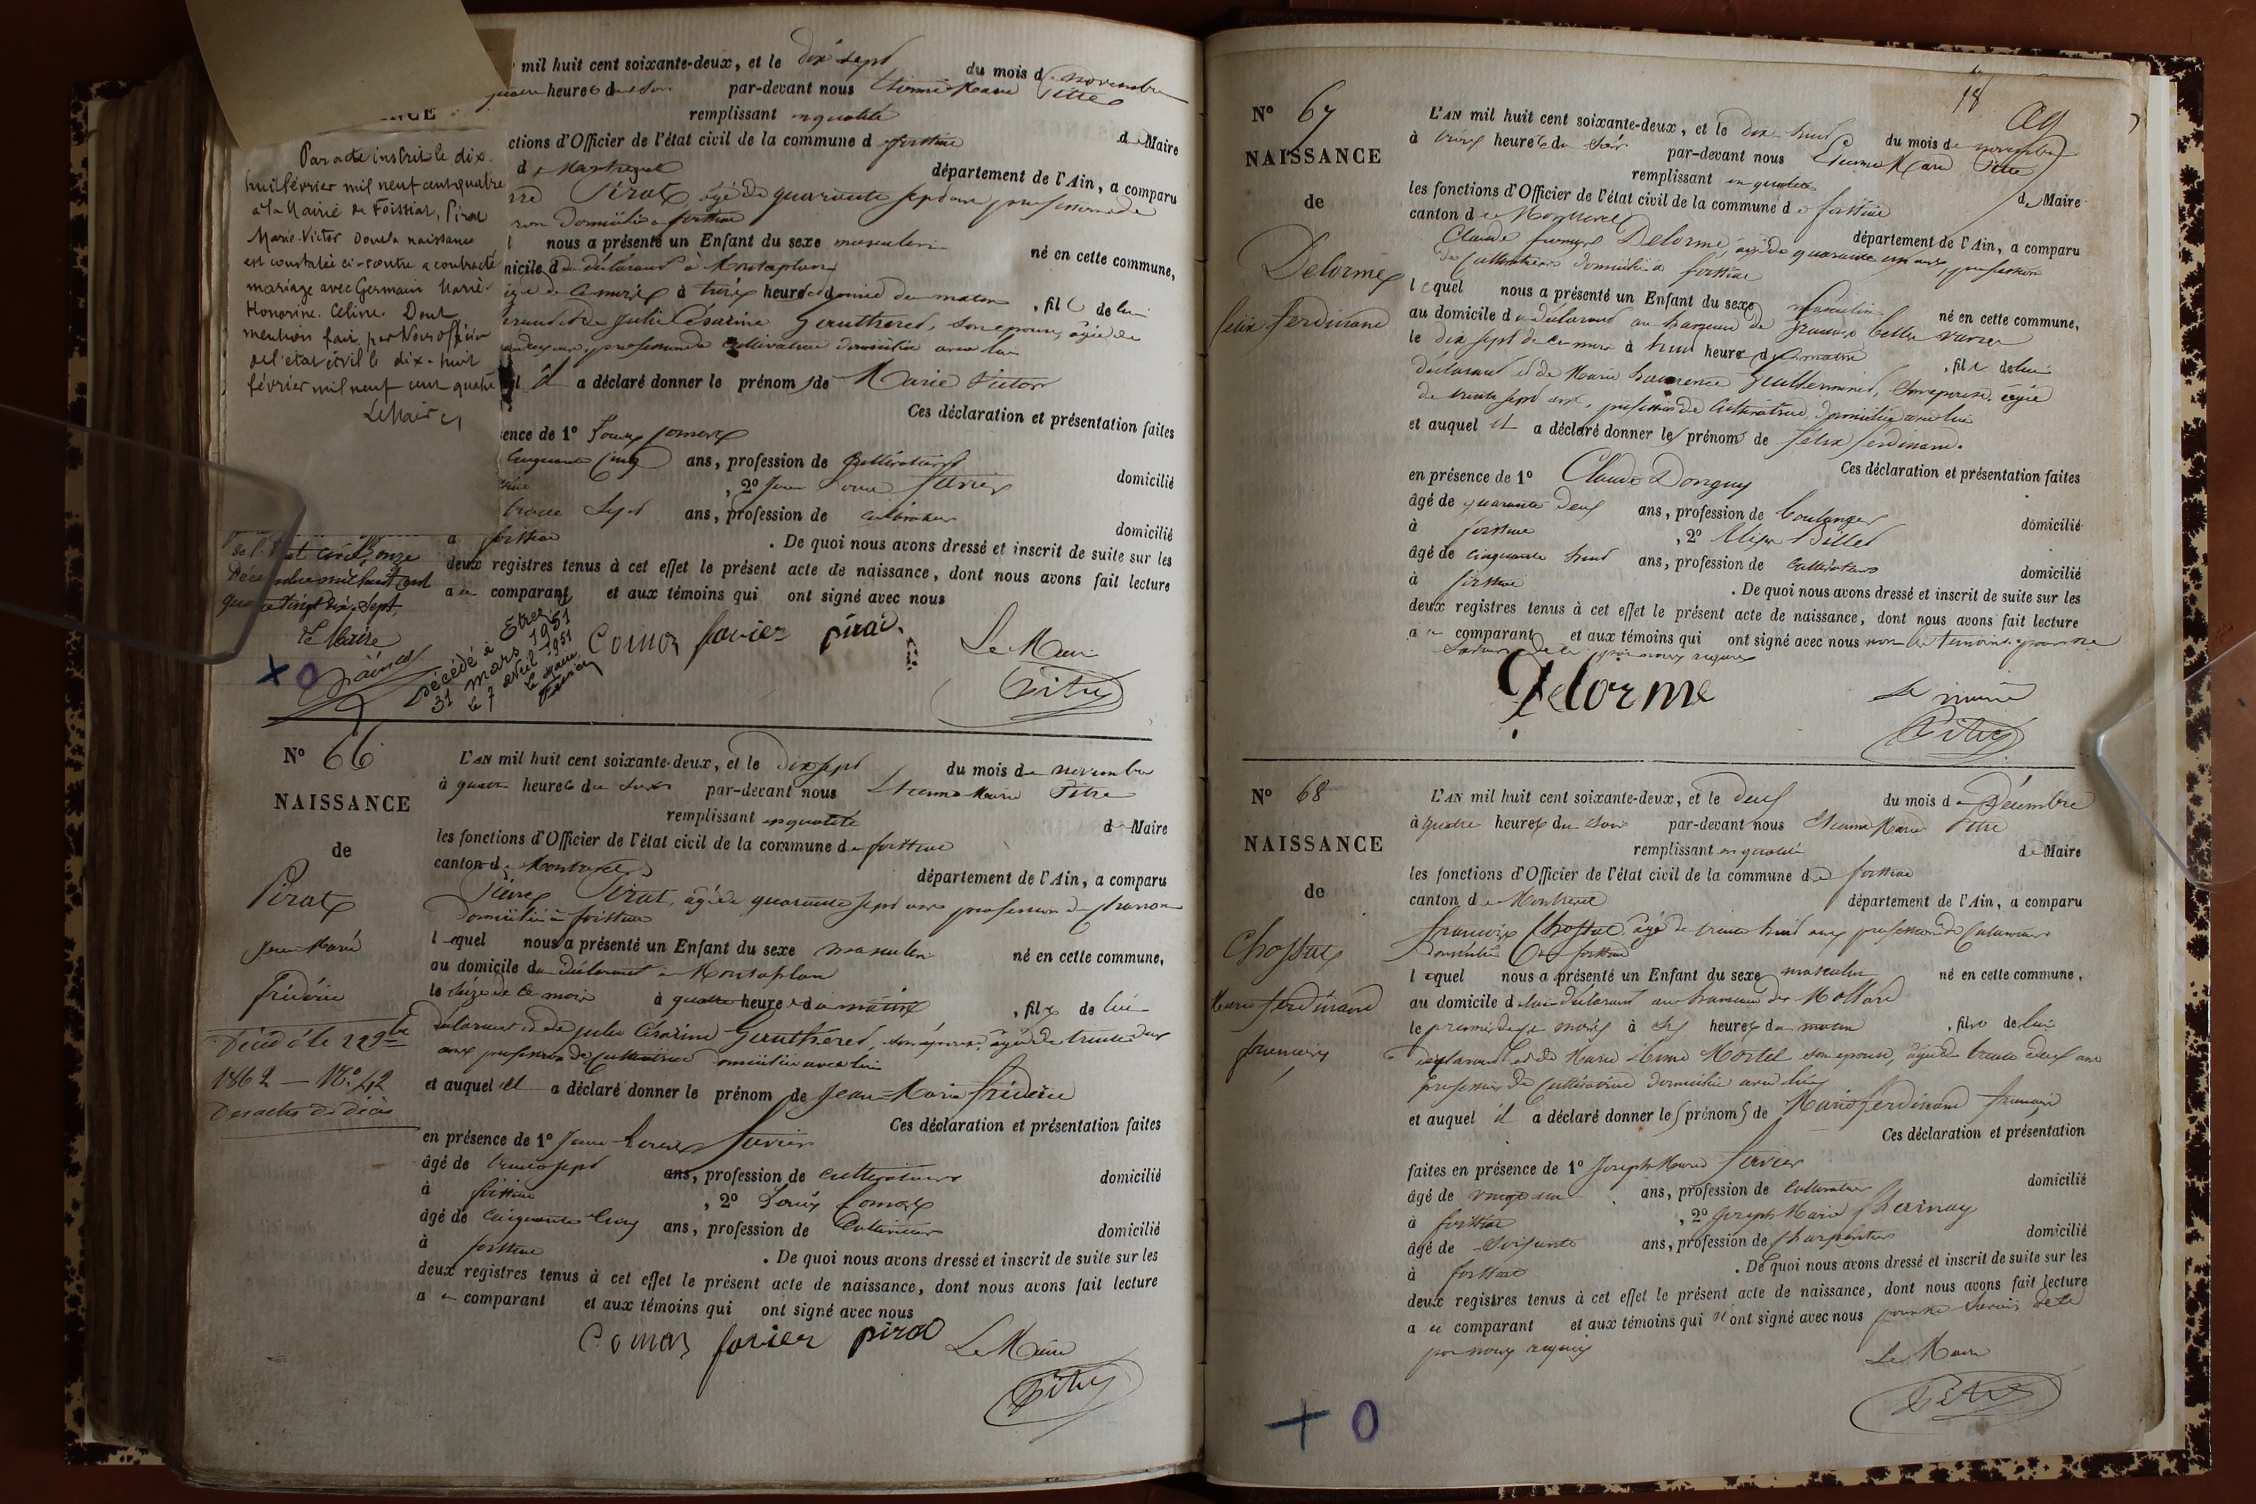 mil huit cent soixante-deux, et le dix sept du mois de novembre
heures du soir par-devant nous Etienne Marie Pitre
remplissant en qualité
de Maire
ctions d'Officier de l'état civil de la commune de foissiat
département de l'Ain, a comparu
Pirat, âgé de quarante sept ans profession de
domicilié à foissiat
nous a présenté un Enfant du sexe masculin
né en cette commune,
nicile du déclarant à Montaplan
de ce mois à trois heures du matin, fils de lui
déclarant et de Julie Césarine Gautheret, son épouse, âgée de
profession de cultivatrice domiciliée avec lui
il a déclaré donner le prénom de Marie Victor
Ces déclaration et présentation faites
ence de 1º Louis
cinquante cinq ans, profession de cultivateur domicilié
, 2º
trente sept ans, profession de cultivateur domicilié
a foissiat. De quoi nous avons dressé et inscrit de suite sur les
deux registres tenus à cet effet le présent acte de naissance, dont nous avons fait lecture
au comparant et aux témoins qui ont signé avec nous
Le Maire
Pitre
NCE
Par acte inscrit le dix-
huit février mil neuf cent quatre
à la Mairie de Foissiat, Pirat
Marie-Victor dont la naissance
est constatée ci-contre a contracté
mariage avec Germain Marie-
Honorine-Céline. Dont
mention fait par Nous officier
de l'état civil le dix-huit
février mil neuf cent quatre
Le Maire
de l'état civil onze
Décembre mil huit cent
quatre vingt dix-sept.
Le Maire
Décédé à
31 mars 1951
le 7 avril 1951
le Maire
Nº 66
NAISSANCE
de
Pirat
Jean Marie
Frédéric
Décédé le 22 9bre
1862 — Nº 42
des actes de décès
L'AN mil huit cent soixante-deux, et le dix sept du mois de novembre
à quatre heures du soir par-devant nous Etienne Marie Pitre
remplissant en qualité de Maire
les fonctions d'Officier de l'état civil de la commune de foissiat
canton de Montrevel département de l'Ain, a comparu
Pierre Pirat, âgé de quarante sept ans profession de
domicilié à foissiat
lequel nous a présenté un Enfant du sexe masculin né en cette commune,
au domicile du déclarant à Montaplan
le seize de ce mois à quatre heures du matin, fils de lui
déclarant et de Julie Césarine Gautheret, son épouse, âgée de trente deux
ans profession de cultivatrice domiciliée avec lui
et auquel il a déclaré donner le prénom de Jean-Marie frédéric
Ces déclaration et présentation faites
en présence de 1º
âgé de trente sept ans, profession de cultivateur domicilié
à foissiat, 2º Louis
âgé de cinquante cinq ans, profession de cultivateur domicilié
à foissiat. De quoi nous avons dressé et inscrit de suite sur les
deux registres tenus à cet effet le présent acte de naissance, dont nous avons fait lecture
au comparant et aux témoins qui ont signé avec nous
Le Maire
Pitre
18
Nº 67
NAISSANCE
de
Delorme
felix ferdinand
L'AN mil huit cent soixante-deux, et le dix huit du mois de novembre
à trois heures du soir par-devant nous Etienne Marie Pitre
remplissant en qualité de Maire
les fonctions d'Officier de l'état civil de la commune de foissiat
canton de Montrevel département de l'Ain, a comparu
Claude Delorme, âgé de quarante un ans, profession
de cultivateur domicilié à foissiat
lequel nous a présenté un Enfant du sexe masculin né en cette commune,
au domicile du déclarant au hameau de
le dix sept de ce mois à huit heures du matin, fils de lui
déclarant et de Marie Laurence Guillermin, son épouse, âgée
de trente sept ans, profession de cultivatrice, domiciliée avec lui
et auquel il a déclaré donner les prénoms de felix ferdinand.
Ces déclaration et présentation faites
en présence de 1º Claude Donguy
âgé de quarante deux ans, profession de boulanger domicilié
à foissiat, 2º Billet
âgé de cinquante huit ans, profession de cultivateur domicilié
à foissiat. De quoi nous avons dressé et inscrit de suite sur les
deux registres tenus à cet effet le présent acte de naissance, dont nous avons fait lecture
au comparant et aux témoins qui ont signé avec nous non les témoins pour ne
savoir de ce par nous requis
Delorme
Le maire
Pitre
Nº 68
NAISSANCE
de
Chossat
Marie ferdinand
françois
L'AN mil huit cent soixante-deux, et le deux du mois de Décembre
à quatre heures du soir par-devant nous Etienne Marie Pitre
remplissant en qualité de Maire
les fonctions d'Officier de l'état civil de la commune de foissiat
canton de Montrevel département de l'Ain, a comparu
françois Chossat, âgé de trente huit ans profession de cultivateur
domicilié à foissiat
lequel nous a présenté un Enfant du sexe masculin né en cette commune,
au domicile de lui déclarant au hameau de
le premier de ce mois à six heures du matin, fils de lui
déclarant et de Marie Mortel son épouse, âgée de trente deux ans
profession de cultivatrice domiciliée avec lui
et auquel il a déclaré donner les prénoms de Marie ferdinand françois
Ces déclaration et présentation
faites en présence de 1º Joseph Marie
âgé de ans, profession de cultivateur domicilié
à foissiat, 2º Joseph Marie
âgé de soixante ans, profession de charpentier domicilié
à foissiat. De quoi nous avons dressé et inscrit de suite sur les
deux registres tenus à cet effet le présent acte de naissance, dont nous avons fait lecture
au comparant et aux témoins qui n'ont signé avec nous pour ne savoir de ce
par nous requis
Le Maire
Pitre